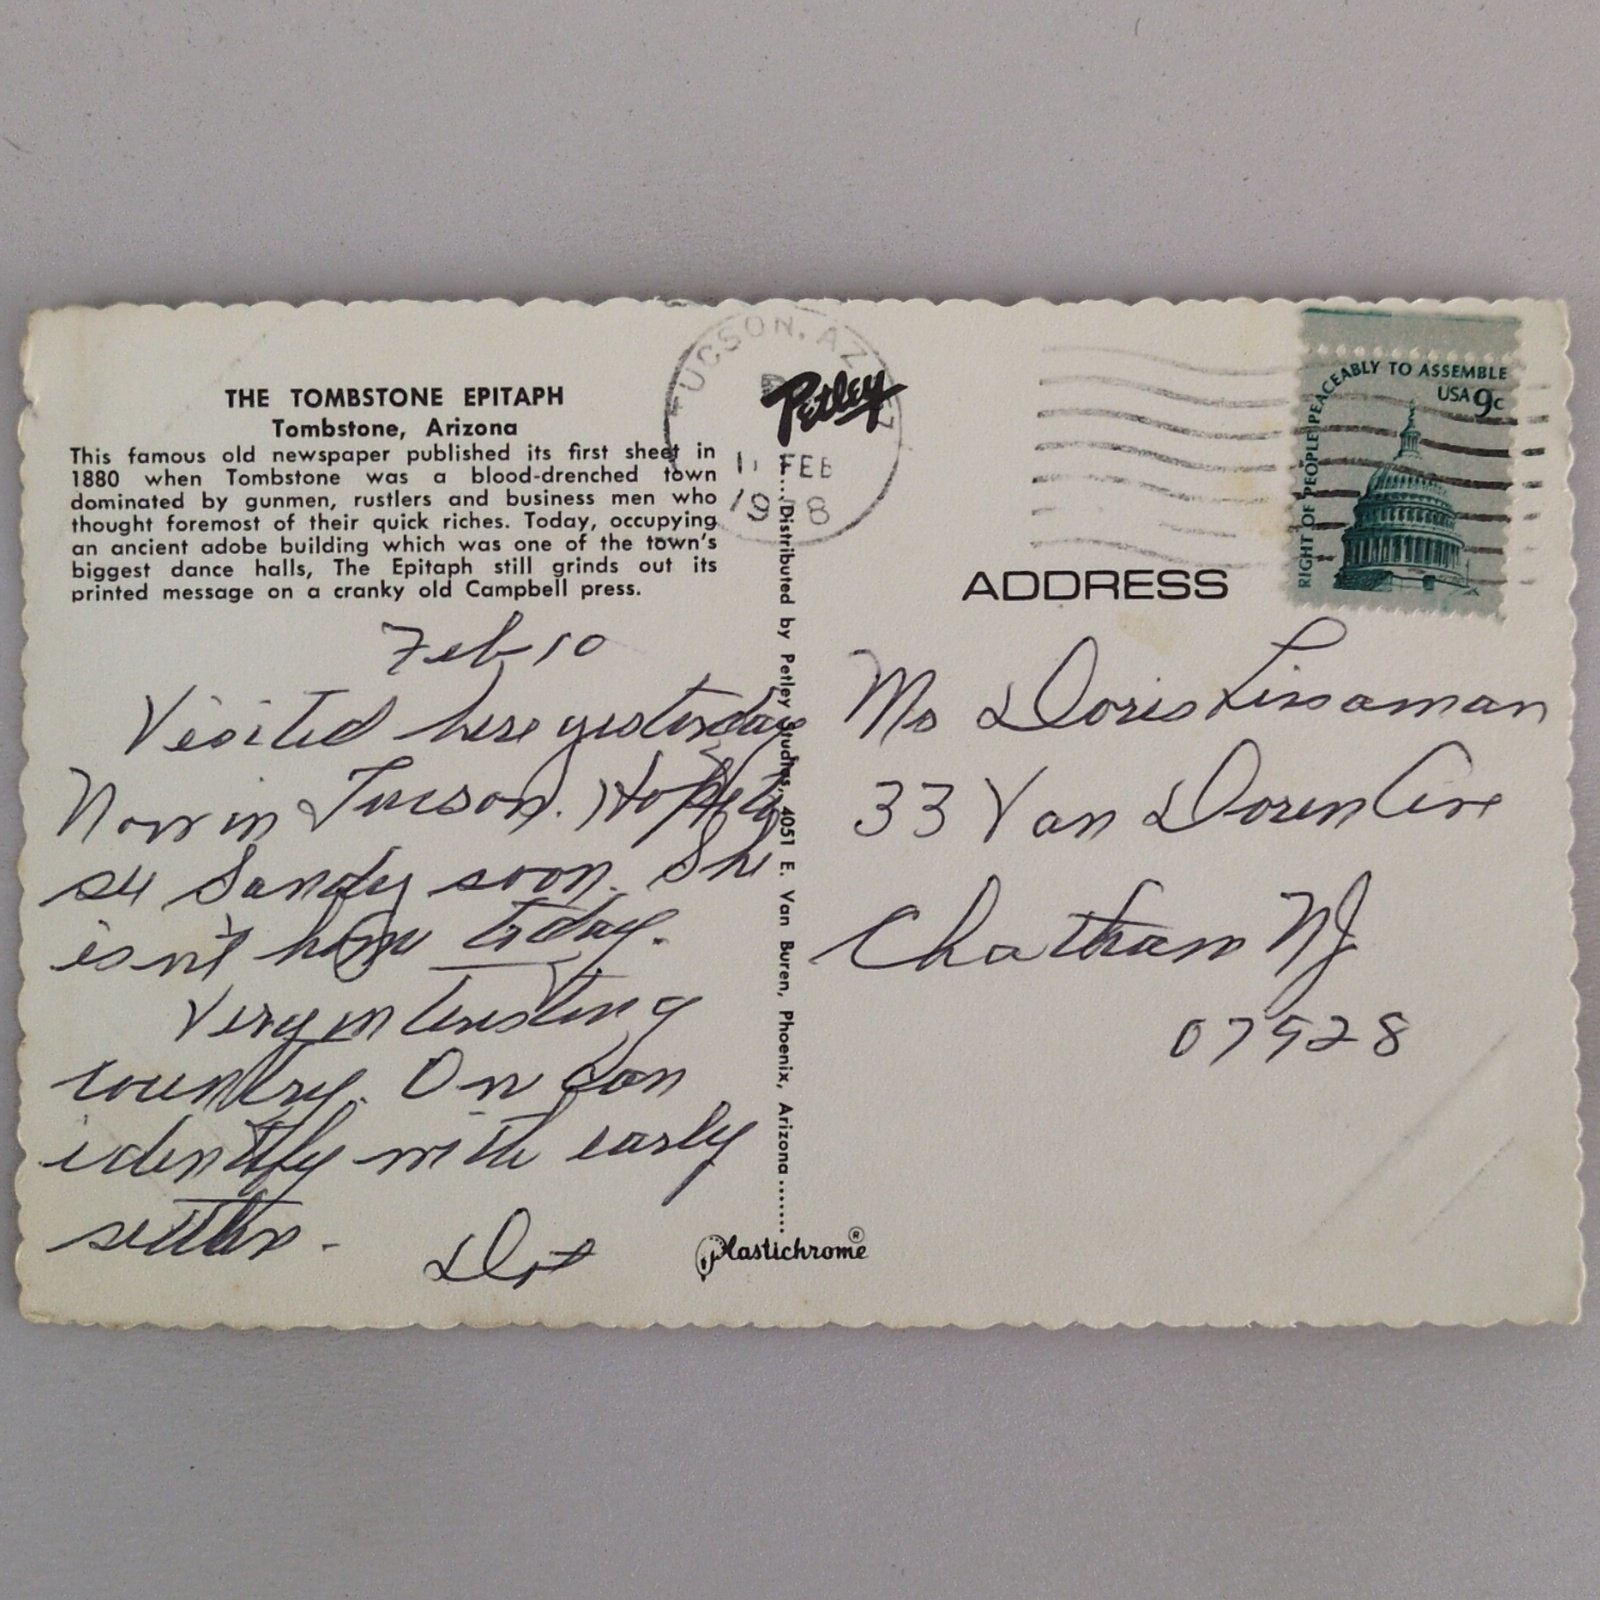 THE TOMBSTONE EPITAPH
Tombstone, Arizona
This famous old newspaper published its first sheet in
1880 when Tombstone was a blood-drenched town
dominated by gunmen, rustlers and business men who
thought foremost of their quick riches. Today, occupying
an ancient adobe building which was one of the town's
biggest dance halls, The Epitaph still grinds out its
printed message on a cranky old Campbell press.
Feb 10
Visited here yesterday
Now in Tucson. Hope to
see Sandy soon. She
isn't home today.
Very interesting
country. One can
identify with early
settlers.
Dot
TUCSON, AZ
FEB
Petley
Distributed by Petley Studios, 4051 E. Van Buren, Phoenix, Arizona
Plastichrome®
RIGHT OF PEOPLE PEACEABLY TO ASSEMBLE
USA 9c
ADDRESS
Ms Doris Linsaman
33 Van Doren Ave
Chatham NJ
07928